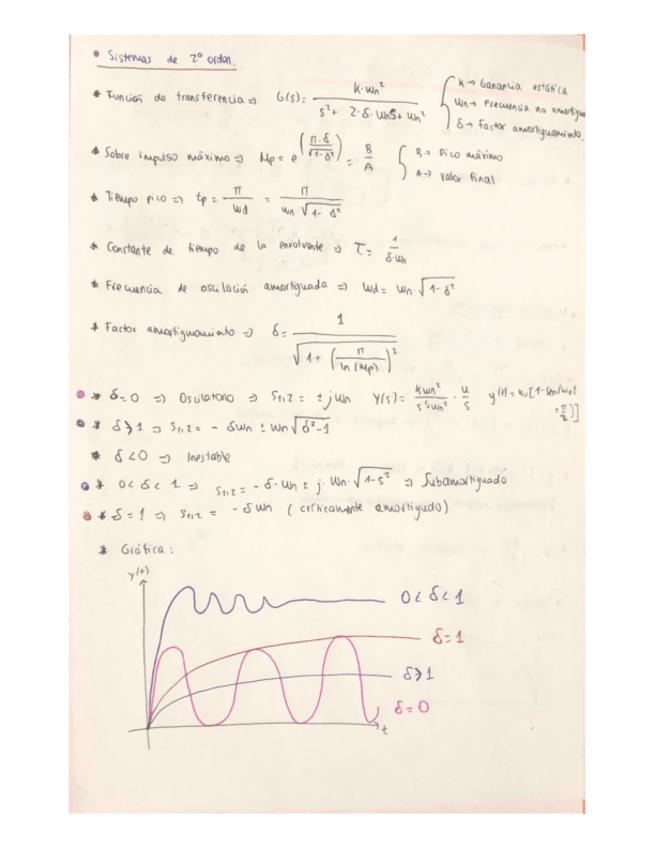 • Sistemas de 2º orden.
* Función de transferencia => G(s) = K·Wn² / (s² + 2·δ·WnS + Wn²) { K → Ganancia estática
Wn → Frecuencia no amortigua
δ → Factor amortiguamiento.
* Sobre impulso máximo => Mp = e^(π·δ / √(1-δ²)) = B/A { B → Pico máximo
A → Valor final
* Tiempo pico => tp = π/Wd = π / (Wn·√(1-δ²))
* Constante de tiempo de la envolvente => τ = 1/(δ·Wn)
* Frecuencia de oscilación amortiguada => Wd = Wn·√(1-δ²)
* Factor amortiguamiento => δ = 1 / √(1 + (π / ln(Mp))²)
* δ=0 => Oscilatorio => S1,2 = ± jWn Y(s) = KWn²/(s²+Wn²) · u/s
* δ>1 => S1,2 = - δWn ± Wn√(δ²-1)
* δ<0 => Inestable
* 0<δ<1 => S1,2 = -δ·Wn ± j·Wn·√(1-δ²) => Subamortiguado
* δ=1 => S1,2 = -δWn (críticamente amortigudo)
* Gráfica:
y(t)
0<δ<1
δ=1
δ>1
δ=0
t